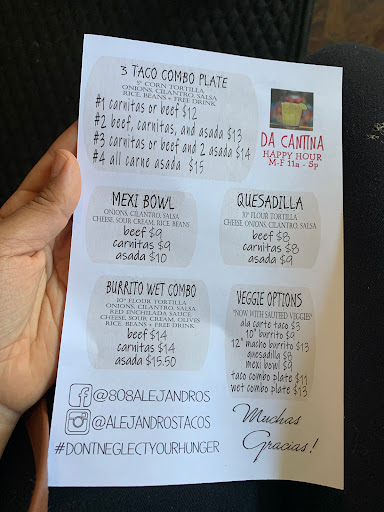 3 TACO COMBO PLATE
5" CORN TORTILLA
ONIONS, CILANTRO, SALSA
RICE, BEANS + FREE DRINK
#1 carnitas or beef $12
#2 beef, carnitas, and asada $13
#3 carnitas or beef and 2 asada $14
#4 all carne asada $15
DA CANTINA
HAPPY HOUR
M-F 11a - 5p
MEXI BOWL
ONIONS, CILANTRO, SALSA
CHEESE, SOUR CREAM, RICE BEANS
beef $9
carnitas $9
asada $10
QUESADILLA
10" FLOUR TORTILLA
CHEESE, ONIONS, CILANTRO, SALSA
beef $8
carnitas $8
asada $9
BURRITO WET COMBO
10" FLOUR TORTILLA
ONIONS, CILANTRO, SALSA
RED ENCHILADA SAUCE
CHEESE, SOUR CREAM, OLIVES
RICE, BEANS + FREE DRINK
beef $14
carnitas $14
asada $15.50
VEGGIE OPTIONS
"NOW WITH SAUTEED VEGGIES"
ala carte taco $3
10" burrito $9
12" macho burrito $13
quesadilla $8
mexi bowl $9
taco combo plate $11
wet combo plate $13
@808ALEJANDROS
@ALEJANDROSTACOS
#DONTNEGLECTYOURHUNGER
Muchas
Gracias!